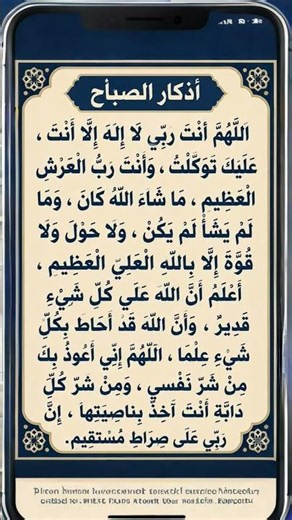 أذكار الصباح
اَللَّهُمَّ أَنْتَ رَبِّي لَا إِلَهَ إِلَّا أَنْتَ ،
عَلَيْكَ تَوَكَّلْتُ ، وَأَنْتَ رَبُّ الْعَرْشِ
الْعَظِيمِ ، مَا شَاءَ اللَّهُ كَانَ ، وَمَا
لَمْ يَشَأْ لَمْ يَكُنْ ، وَلَا حَوْلَ وَلَا
قُوَّةَ إِلَّا بِاللَّهِ الْعَلِيِّ الْعَظِيمِ ،
أَعْلَمُ أَنَّ اللَّهَ عَلَى كُلِّ شَيْءٍ
قَدِيرٌ ، وَأَنَّ اللَّهَ قَدْ أَحَاطَ بِكُلِّ
شَيْءٍ عِلْمًا ، اللَّهُمَّ إِنِّي أَعُوذُ بِكَ
مِنْ شَرِّ نَفْسِي ، وَمِنْ شَرِّ كُلِّ
دَابَّةٍ أَنْتَ آخِذٌ بِنَاصِيَتِهَا ، إِنَّ
رَبِّي عَلَى صِرَاطٍ مُسْتَقِيمٍ.